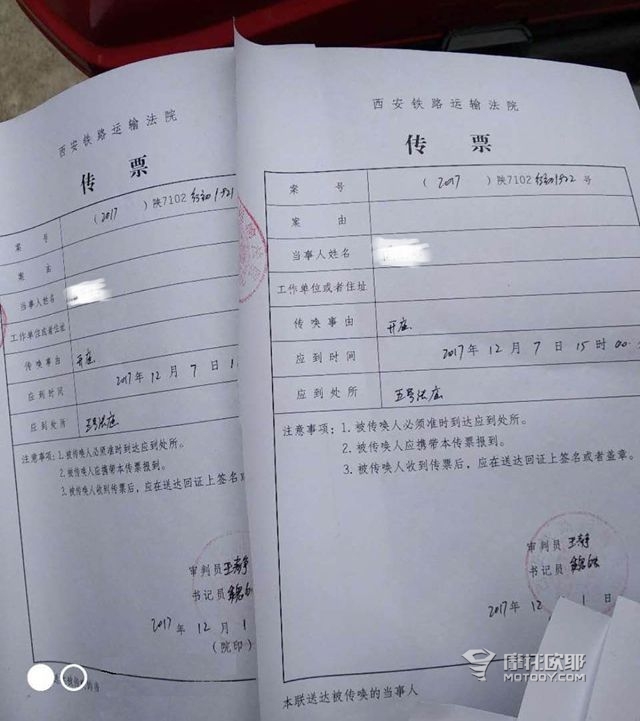 西安铁路运输法院
传 票
案 号 (2017 )陕7102行初1921
案 由
当事人姓名
工作单位或者住址
传唤事由 开庭
应到时间 2017年 12月 7日 1
应到处所 五号法庭
注意事项：1.被传唤人必须准时到达应到处所。
2.被传唤人应携带本传票报到。
3.被传唤人收到传票后，应在送达回证上签名或
审判员
书记员
2017 年 12 月 1
(院印)
西安铁路运输法院
传 票
案 号 (2017 )陕7102行初1922 号
案 由
当事人姓名
工作单位或者住址
传唤事由 开庭
应到时间 2017年 12月 7日 15时 00
应到处所 五号法庭
注意事项：1.被传唤人必须准时到达应到处所。
2.被传唤人应携带本传票报到。
3.被传唤人收到传票后，应在送达回证上签名或者盖章。
审判员
书记员
2017 年 12 1 日
本联送达被传唤的当事人
摩托欧耶
MOTODY.COM